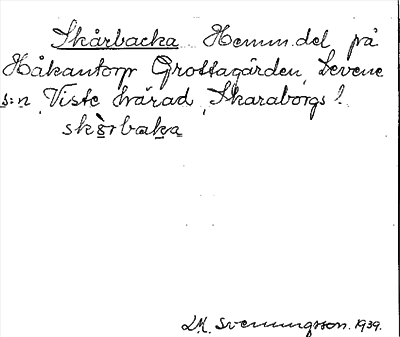 Skårbacka Hemm.del på
Håkantorp Grottagården, Levene
s:n, Viste härad, Skaraborgs l.
skòrbaka
L.M. Svenungsson. 1939.